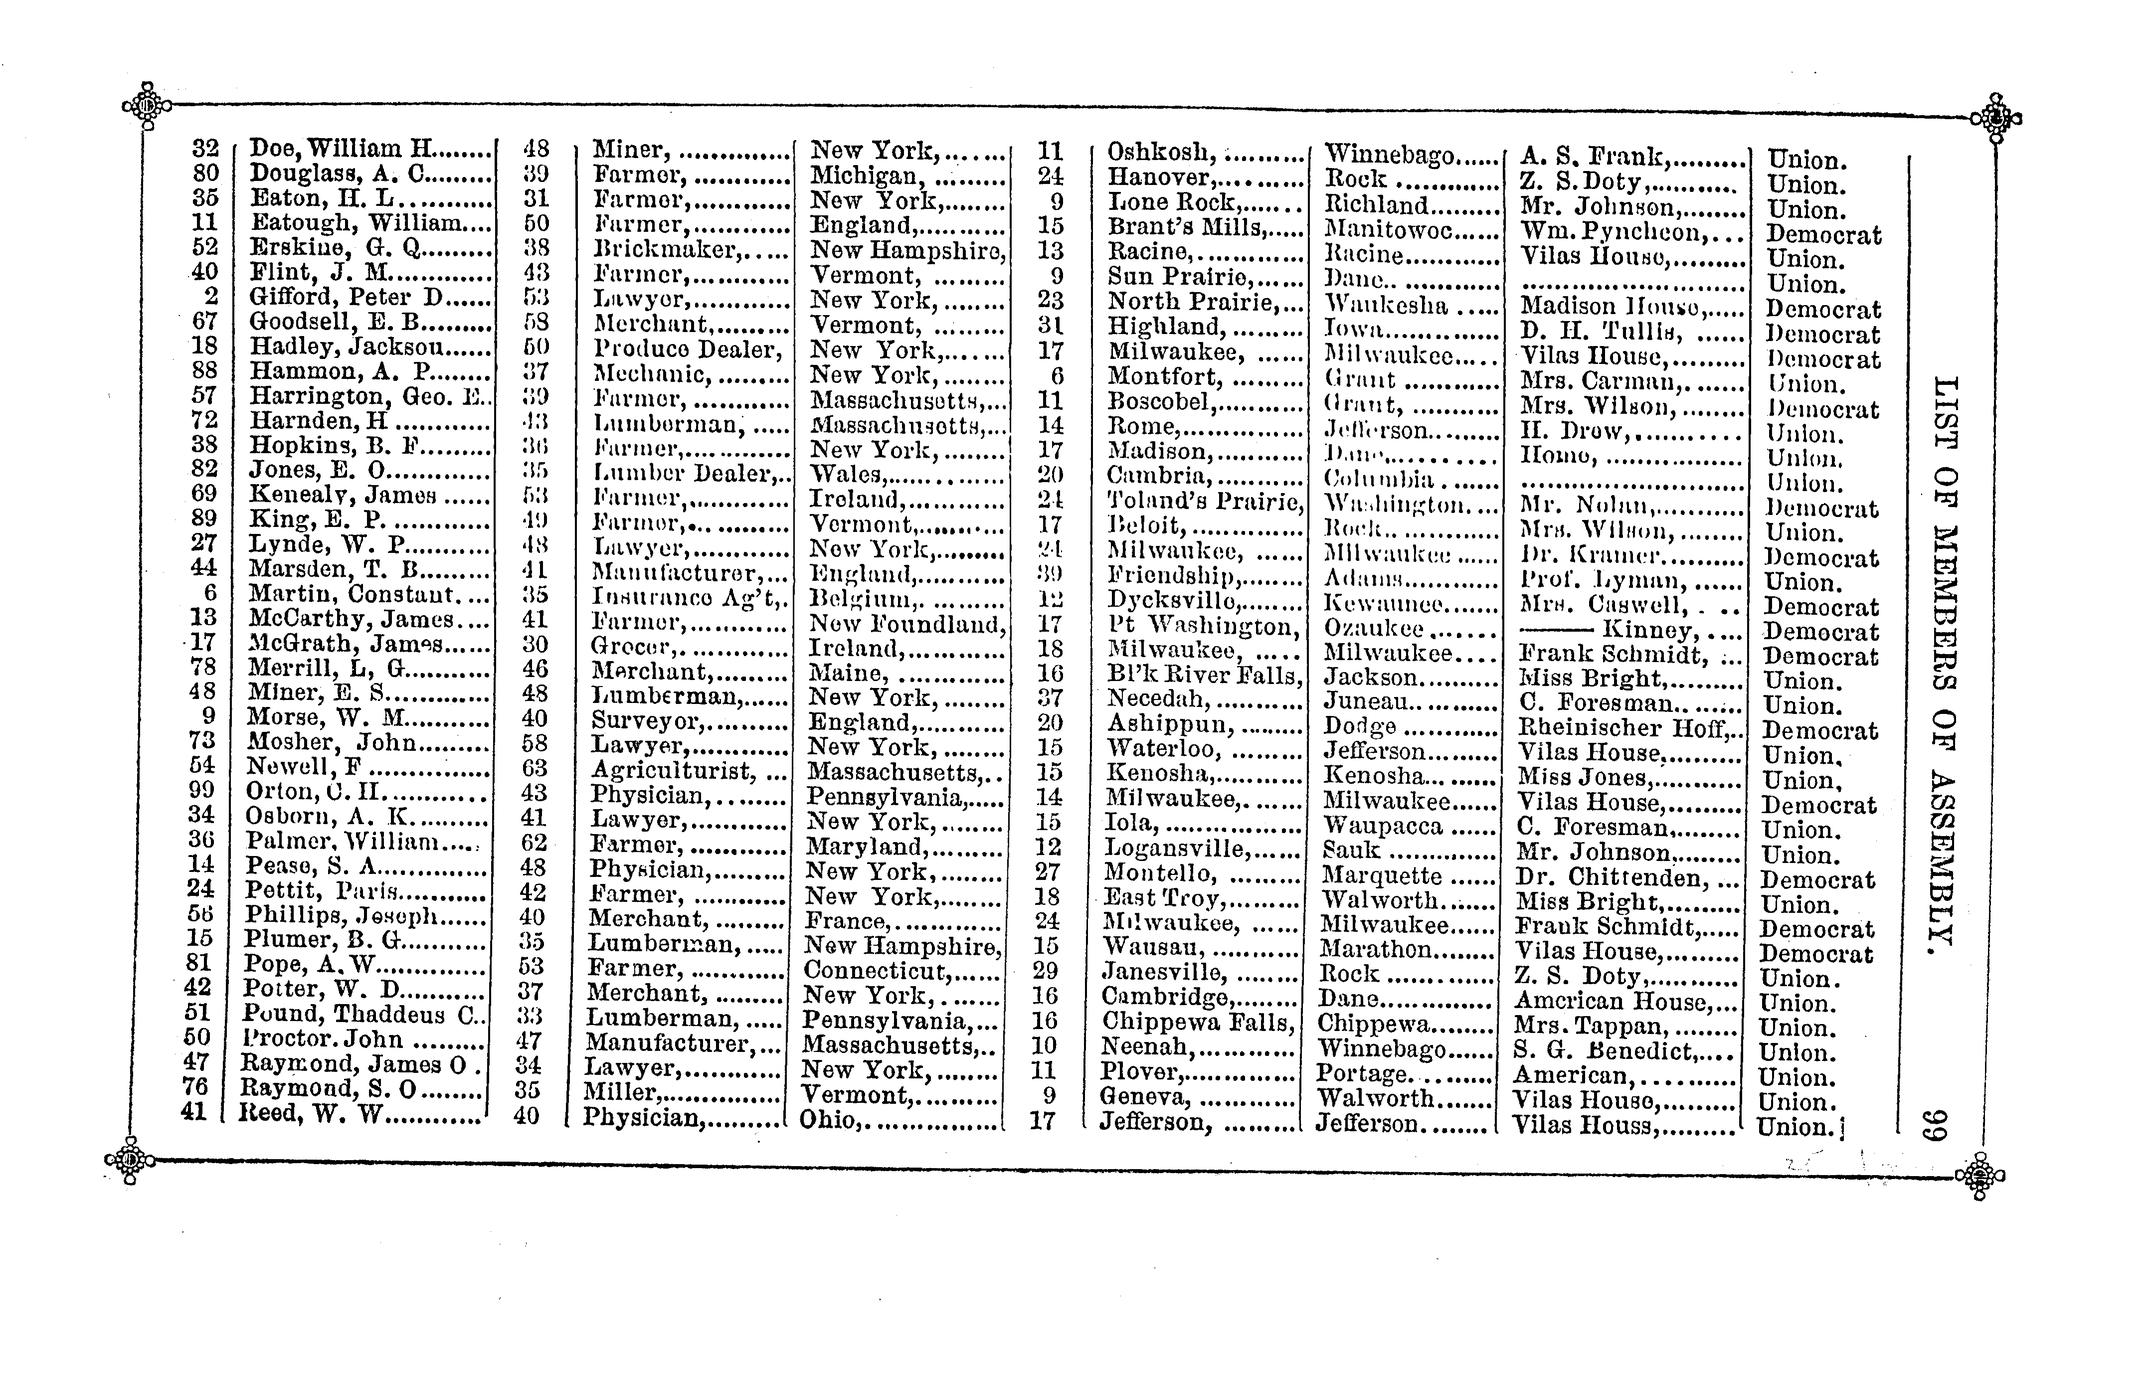 LIST OF MEMBERS OF ASSEMBLY. 99
32 Doe, William H........ 48 Miner, .............. New York,....... 11 Oshkosh, .......... Winnebago...... A. S. Frank,......... Union.
80 Douglass, A. C......... 39 Farmer, ............ Michigan, ......... 24 Hanover,.......... Rock ............. Z. S. Doty,........... Union.
35 Eaton, H. L........... 31 Farmer,............ New York,........ 9 Lone Rock,....... Richland......... Mr. Johnson,........ Union.
11 Eatough, William.... 50 Farmer,............ England,........... 15 Brant's Mills,..... Manitowoc...... Wm. Pyncheon,... Democrat
52 Erskine, G. Q......... 38 Brickmaker,..... New Hampshire, 13 Racine,............. Racine............ Vilas House,......... Union.
40 Flint, J. M............. 43 Farmer,............ Vermont, ......... 9 Sun Prairie,...... Dane.. ............ ........................... Union.
2 Gifford, Peter D...... 53 Lawyer,............ New York, ........ 23 North Prairie,... Waukesha ..... Madison House,..... Democrat
67 Goodsell, E. B......... 58 Merchant,......... Vermont, ......... 31 Highland, ......... Iowa.............. D. H. Tullis, ...... Democrat
18 Hadley, Jackson...... 50 Produce Dealer, New York,....... 17 Milwaukee, ...... Milwaukee..... Vilas House,......... Democrat
88 Hammon, A. P........ 37 Mechanic, ......... New York,........ 6 Montfort, ......... Grant ............ Mrs. Carman,....... Union.
57 Harrington, Geo. E.. 39 Farmer, ............ Massachusetts,... 11 Boscobel,........... Grant, ........... Mrs. Wilson,........ Democrat
72 Harnden, H ............ 43 Lumberman, ..... Massachusetts,... 14 Rome,............... Jefferson......... H. Drew,........... Union.
38 Hopkins, B. F......... 36 Farmer,............. New York,........ 17 Madison,........... Dane,............. Home, ................. Union.
82 Jones, E. O............. 35 Lumber Dealer,.. Wales,............. 20 Cambria,........... Columbia ....... ........................... Union.
69 Kenealy, James ...... 53 Farmer,............ Ireland,............ 24 Toland's Prairie, Washington.... Mr. Nolan,........... Democrat
89 King, E. P. ............ 49 Farmer,............ Vermont,.......... 17 Beloit, ............. Rock.. ............ Mrs. Wilson,........ Union.
27 Lynde, W. P........... 48 Lawyer,............ New York,......... 24 Milwaukee, ...... Milwaukee ..... Dr. Kramer.......... Democrat
44 Marsden, T. B......... 41 Manufacturer,... England,........... 39 Friendship,....... Adams............ Prof. Lyman, ...... Union.
6 Martin, Constant. ... 35 Insurance Ag't,. Belgium,. ......... 12 Dycksville,........ Kewaunee....... Mrs. Caswell, . .. Democrat
13 McCarthy, James.... 41 Farmer,............ New Foundland, 17 Pt Washington, Ozaukee ........ ——— Kinney, .... Democrat
17 McGrath, James...... 30 Grocer,. ............ Ireland,............ 18 Milwaukee, ..... Milwaukee.... Frank Schmidt, ... Democrat
78 Merrill, L, G........... 46 Merchant,......... Maine, ............. 16 Bl'k River Falls, Jackson.......... Miss Bright,......... Union.
48 Miner, E. S............. 48 Lumberman,...... New York, ........ 37 Necedah, ........... Juneau.. ......... C. Foresman........ Union.
9 Morse, W. M........... 40 Surveyor,.......... England,........... 20 Ashippun, ......... Dodge ............ Rheinischer Hoff,.. Democrat
73 Mosher, John......... 58 Lawyer,............ New York, ........ 15 Waterloo, ......... Jefferson......... Vilas House.......... Union.
54 Newell, F ............... 63 Agriculturist, ... Massachusetts,.. 15 Kenosha,........... Kenosha... ...... Miss Jones,........... Union.
99 Orton, C. H............ 43 Physician,......... Pennsylvania,..... 14 Milwaukee,....... Milwaukee...... Vilas House,......... Democrat
34 Osborn, A. K.......... 41 Lawyer,............ New York, ........ 15 Iola, ................. Waupacca ...... C. Foresman,........ Union.
36 Palmer, William..... 62 Farmer, ............ Maryland,......... 12 Logansville,...... Sauk ............. Mr. Johnson,........ Union.
14 Pease, S. A............. 48 Physician,......... New York,........ 27 Montello, ......... Marquette ...... Dr. Chittenden, ... Democrat
24 Pettit, Paris........... 42 Farmer, ............ New York,........ 18 East Troy,......... Walworth....... Miss Bright,......... Union.
56 Phillips, Joseph...... 40 Merchant, ......... France,............. 24 Milwaukee, ...... Milwaukee...... Frank Schmidt,..... Democrat
15 Plumer, B. G........... 35 Lumberman, ..... New Hampshire, 15 Wausau, ........... Marathon........ Vilas House,......... Democrat
81 Pope, A. W.............. 53 Farmer, ............ Connecticut,...... 29 Janesville, ........ Rock ............. Z. S. Doty,........... Union.
42 Potter, W. D........... 37 Merchant, ......... New York,. ...... 16 Cambridge,........ Dane.............. American House,... Union.
51 Pound, Thaddeus C.. 33 Lumberman, ..... Pennsylvania,... 16 Chippewa Falls, Chippewa........ Mrs. Tappan, ........ Union.
50 Proctor. John ......... 47 Manufacturer,... Massachusetts,.. 10 Neenah,............ Winnebago...... S. G. Benedict,.... Union.
47 Raymond, James O . 34 Lawyer,............ New York,........ 11 Plover,.............. Portage.......... American,........... Union.
76 Raymond, S. O........ 35 Miller,.............. Vermont,.......... 9 Geneva, ............ Walworth....... Vilas House,......... Union.
41 Reed, W. W............ 40 Physician,......... Ohio,................ 17 Jefferson, ......... Jefferson........ Vilas Houss,......... Union.